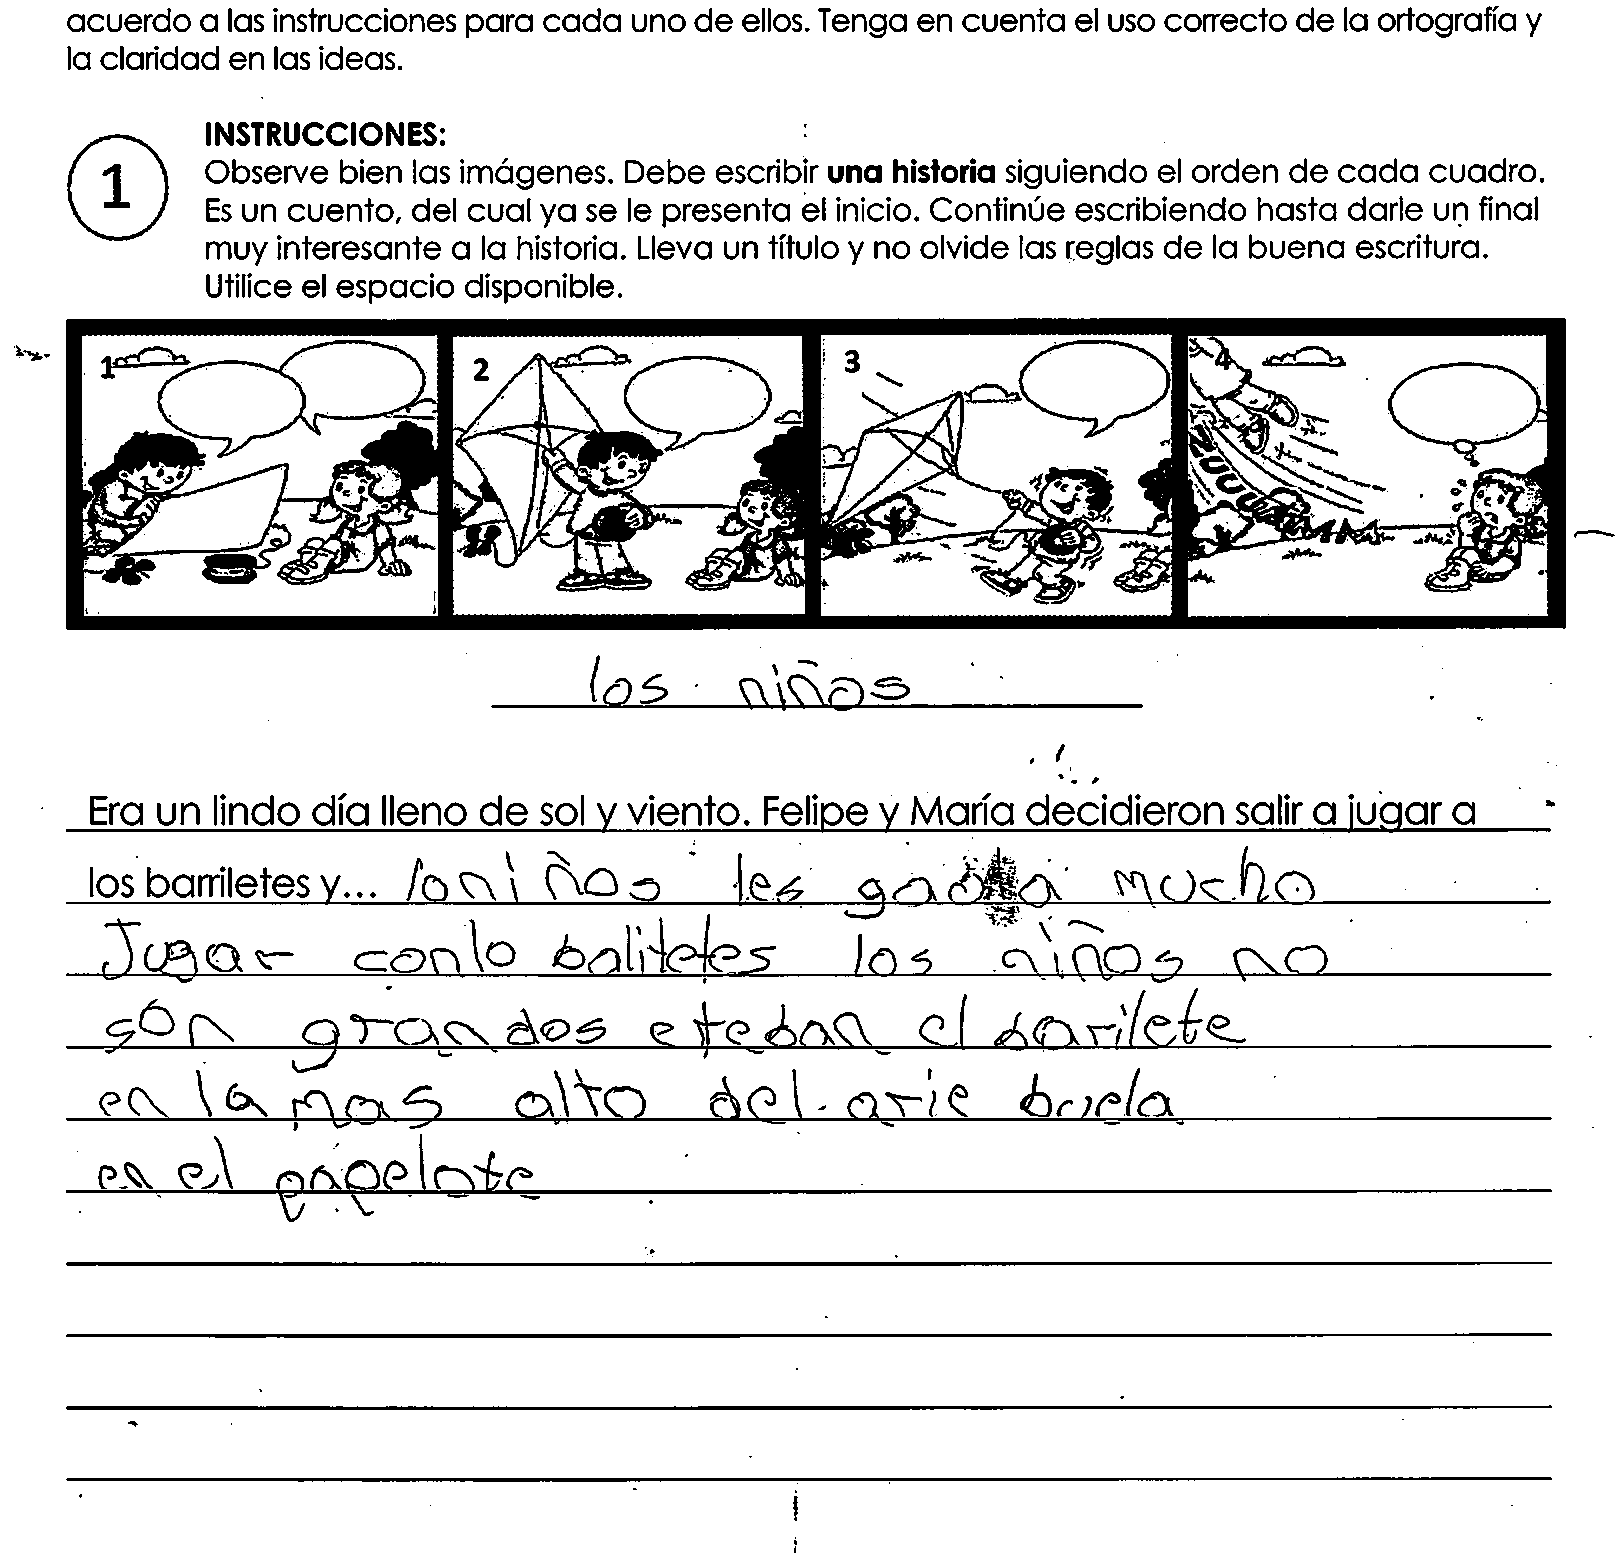 acuerdo a las instrucciones para cada uno de ellos. Tenga en cuenta el uso correcto de la ortografía y
la claridad en las ideas.
1
INSTRUCCIONES:
Observe bien las imágenes. Debe escribir una historia siguiendo el orden de cada cuadro.
Es un cuento, del cual ya se le presenta el inicio. Continúe escribiendo hasta darle un final
muy interesante a la historia. Lleva un título y no olvide las reglas de la buena escritura.
Utilice el espacio disponible.
1 2 3 4
los niños
Era un lindo día lleno de sol y viento. Felipe y María decidieron salir a jugar a
los barriletes y... loniños les mucho
Jugar conlo baliteles los niños no
son grandos eteban el barilete
en la mas alto del arie buela
en el papelote